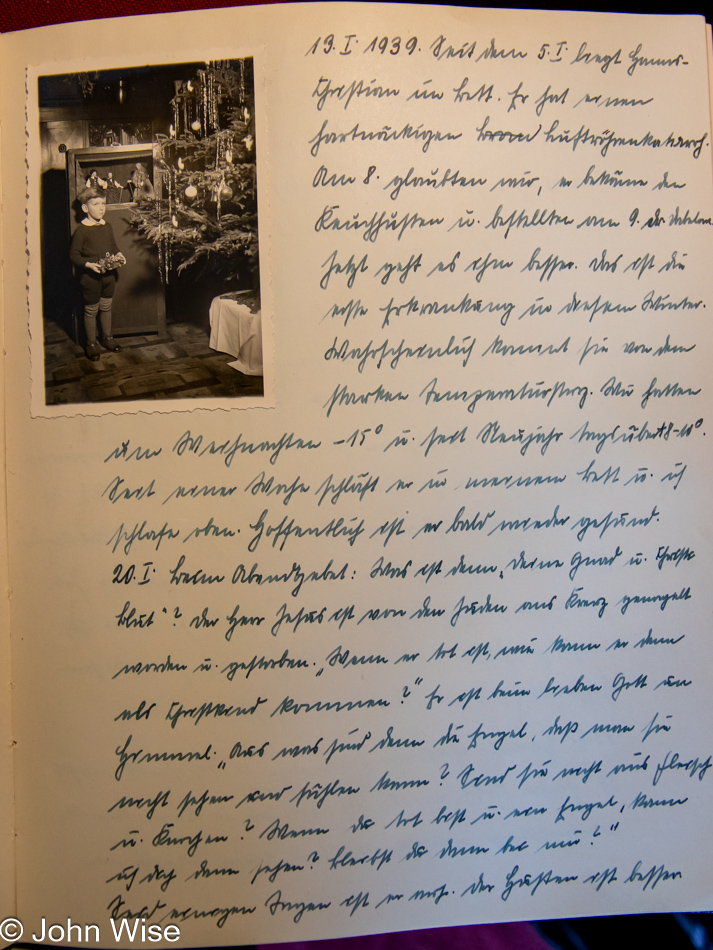 13. I. 1939. Seit dem 5. I. liegt Hanns-
Christian im Bett. Er hat einen
hartnäckigen Luftröhrenkatarrh.
Am 8. glaubten wir, er bekäme den
Keuchhusten u. bestellten am 9. dr.
Jetzt geht es ihm besser. Das ist die
erste Erkrankung in diesem Winter.
Wahrscheinlich kommt sie von dem
starken Temperatursturz. Wir hatten
um Weihnachten -15° u. seit Neujahr tagsüber +8-10°.
Seit einer Woche schläft er in meinem Bett u. ich
schlafe oben. Hoffentlich ist er bald wieder gesund.
20. I. Beim Abendgebet: Was ist denn „deine Gnad u. Christi
Blut"? Der Herr Jesus ist von den Juden ans Kreuz genagelt
worden u. gestorben. „Wenn er tot ist, wie kann er denn
als Christkind kommen?" Er ist beim lieben Gott im
Himmel. „Aus was sind denn die Engel, daß man sie
nicht sehen und fühlen kann? Sind sie nicht aus Fleisch
u. Knochen? Wenn du tot bist u. ein Engel, kann
ich dich denn sehen? Bleibst du dann bei mir?"
Seit einigen Tagen ist er auf. Der Husten ist besser
© John Wise